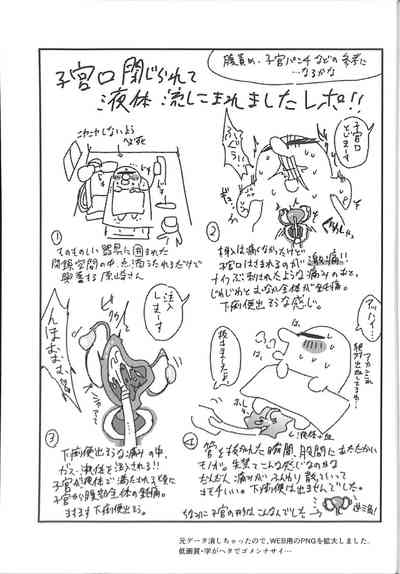 腹責め、子宮パンチなどの参考に
…なるかな
子宮口閉じられて
液体流しこまれましたレポ!!
①
ものものしい器具に囲まれた
興奮する
②
子宮口
とじまーす
挿入は痛くなかったけど
子宮口はさまれるのが激痛!!
ナイフで刺されたような痛みのあと、
じわじわと
全体が鈍痛。
下痢便出そうな感じ。
注入
しまーす
③
下痢便出そうな痛みの中、
ガス・液体を注入される!!
子宮が液体で満たされて後に
子宮から腹部全体の鈍痛。
ますます下痢便出そう。
抜きましたよ。
④
管を抜かれた瞬間、股間にあたたかい
モノが。失禁ってこんな感じなのかな
だんだん痛みがふんわり散っていって
キモチいい。下痢便は出ませんでした。
ちなみに子宮の形はこんなでした→
元データ消しちゃったので、WEB用のPNGを拡大しました。
低画質・字がヘタでゴメンナサイ…